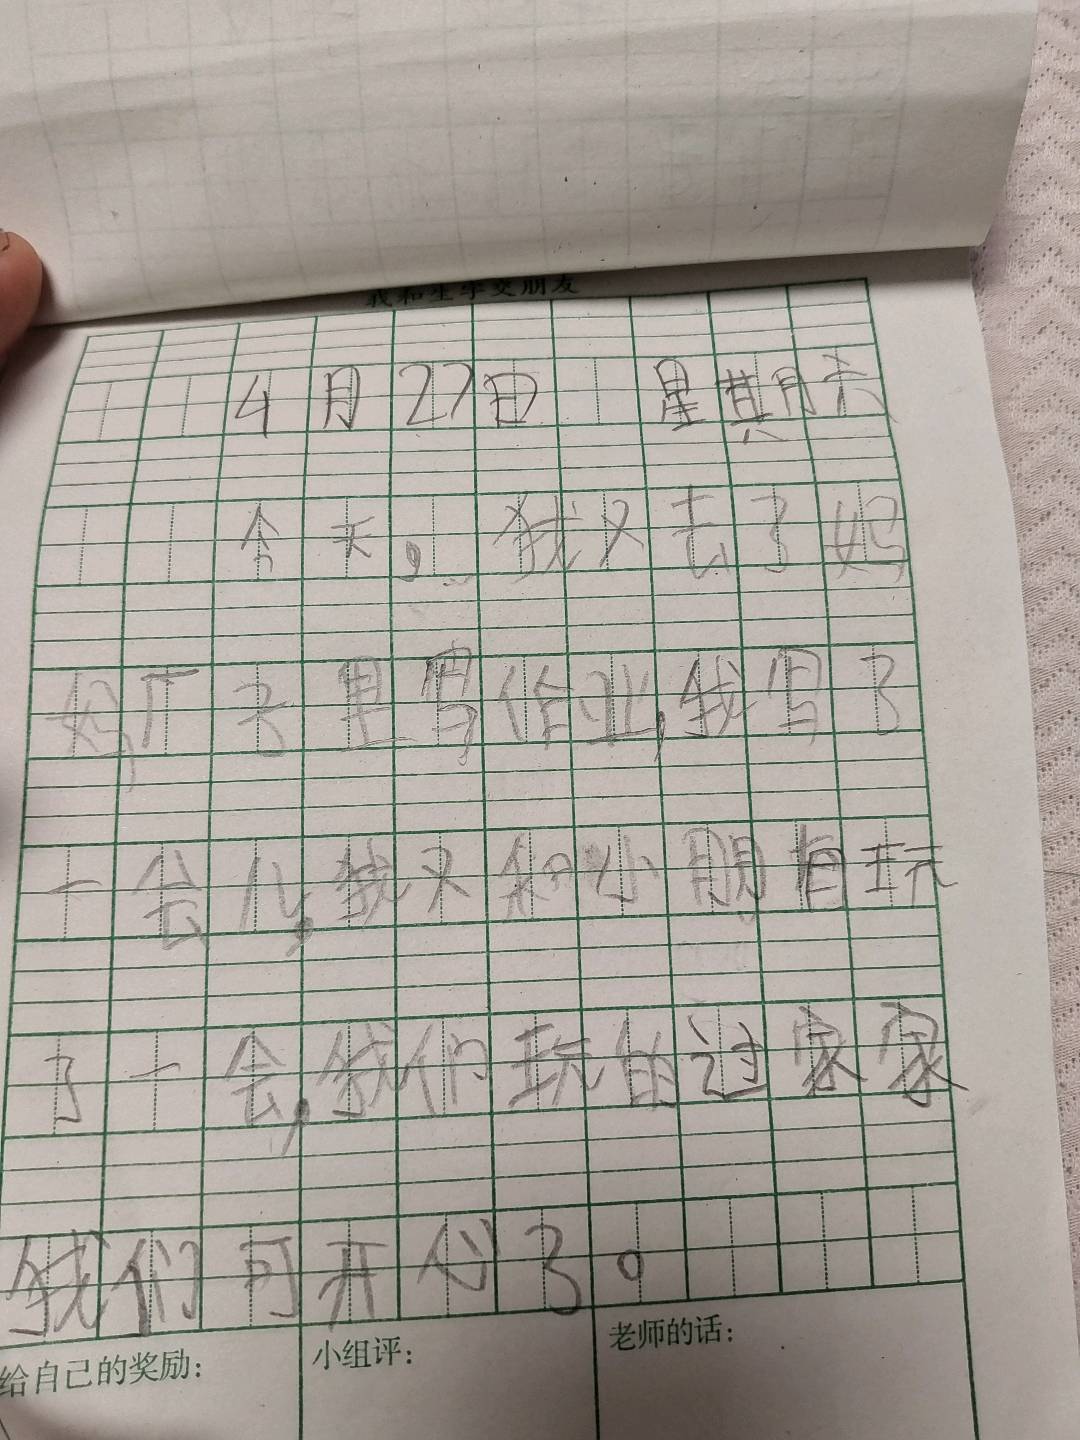 我和生字交朋友
4月27日 星期六
今天,我又去了妈
妈,厂子里写作业,我写了
一会儿,我又和小朋有玩
了一会,我们玩的过家家
我们可开心了。
给自己的奖励:
小组评:
老师的话: